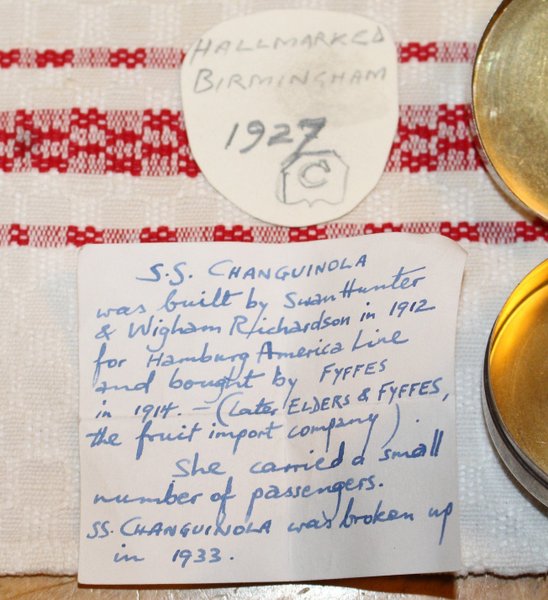 HALLMARKED
BIRMINGHAM
1927
C
S.S. CHANGUINOLA
was built by Swan Hunter
& Wigham Richardson in 1912
for Hamburg America Line
and bought by FYFFES
in 1914. – (Later ELDERS & FYFFES,
the fruit import company)
She carried a small
number of passengers.
SS. CHANGUINOLA was broken up
in 1933.